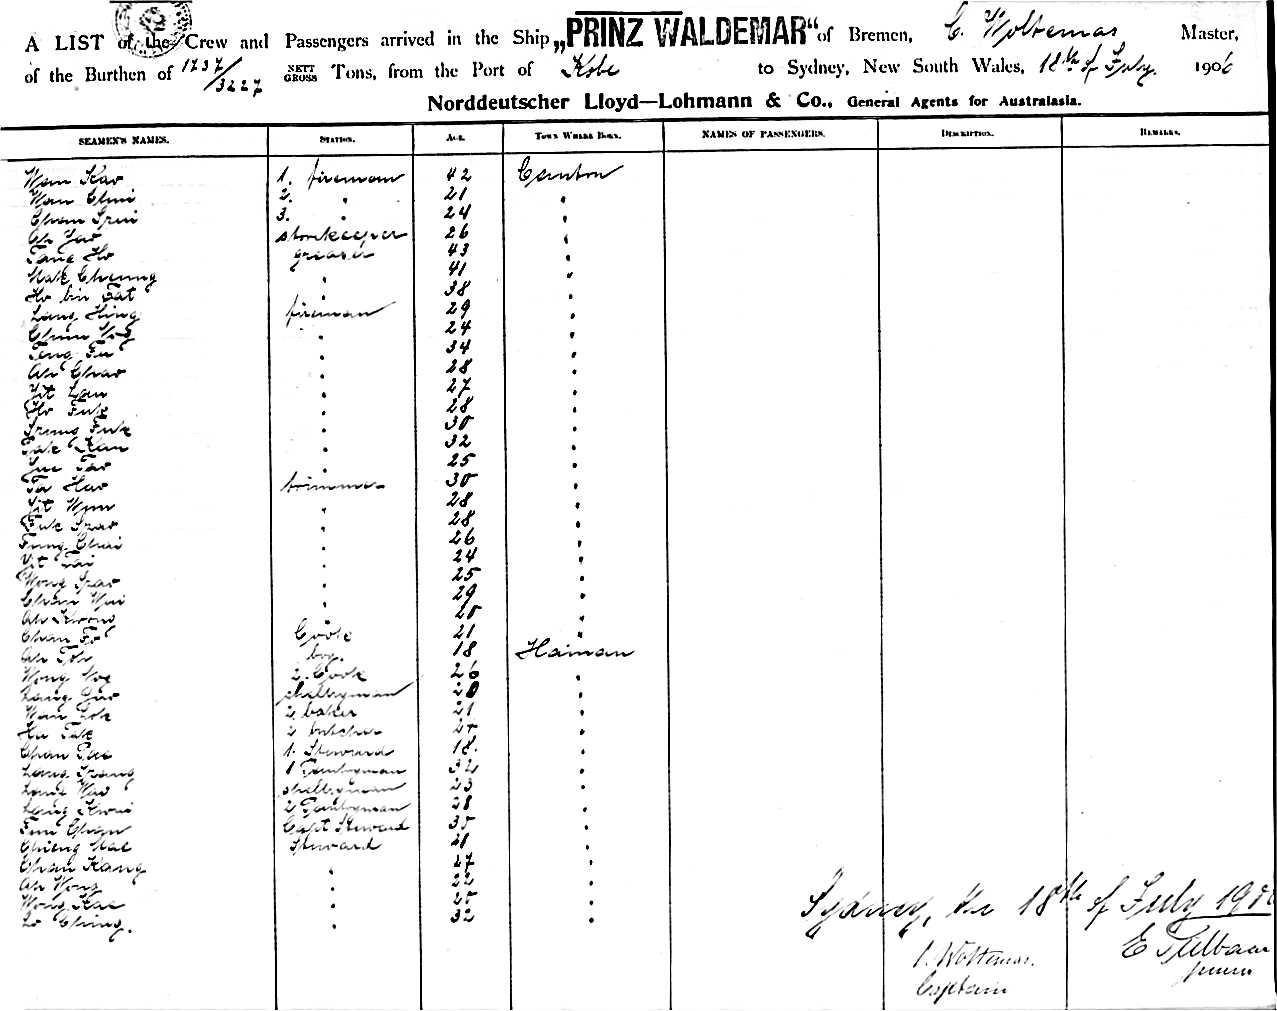 A LIST of the Crew and Passengers arrived in the Ship „PRINZ WALDEMAR“ of Bremen, C. Woltemas Master,
of the Burthen of 1737/3227 NETT GROSS Tons, from the Port of Kobe to Sydney, New South Wales, 18th of July. 1906
Norddeutscher Lloyd—Lohmann & Co., General Agents for Australasia.
SEAMEN'S NAMES. STATION. AGE. TOWN WHERE BORN. NAMES OF PASSENGERS. DESCRIPTION. REMARKS.
Wam Kao 1. fireman 42 Canton
Wan Chui 2. " 21 "
Chan 3. " 24 "
Ah Yao storekeeper 26 "
Tang Ho greaser 43 "
Mak Cheung " 41 "
Ho bin Fat " 38 "
Lang Hing fireman 29 "
Chun " 24 "
Tang Fu " 34 "
Ah Chao " 28 "
Yit Lau " 27 "
Ho Fuk " 28 "
Fuk " 30 "
Pak Kan " 32 "
Yue Tao " 25 "
Ta Hao trimmer 30 "
Yit Wun " 28 "
Fuk " 28 "
Fung Chai " 26 "
Yit Tai " 24 "
Wong " 25 "
Chan Wai " 29 "
Ah Kwong " 20 "
Chan Fo Cook 21 "
Ah Foh boy. 18 Hainan
Wong 2. Cook 26 "
Lang Yao 20 "
Wan 2 baker 21 "
Hu Tak 2 butcher 27 "
Chan 1. Steward 18. "
Lang 1 Pantryman 32 "
Lang Wao 23 "
Lang Kwai 2 Pantryman 28 "
Fun Chan Capt Steward 35 "
Chieng Mae Steward 21 "
Chan Kang " 27 "
Ah Wong " 22 "
Wong Kae " 27 "
Lo Ching. " 32 "
Sydney, the 18th of July 1906
C. Woltemas.
Captain
E